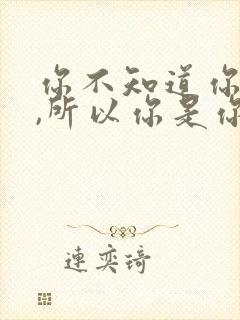 你不知道你
,所以你是你
連奕琦